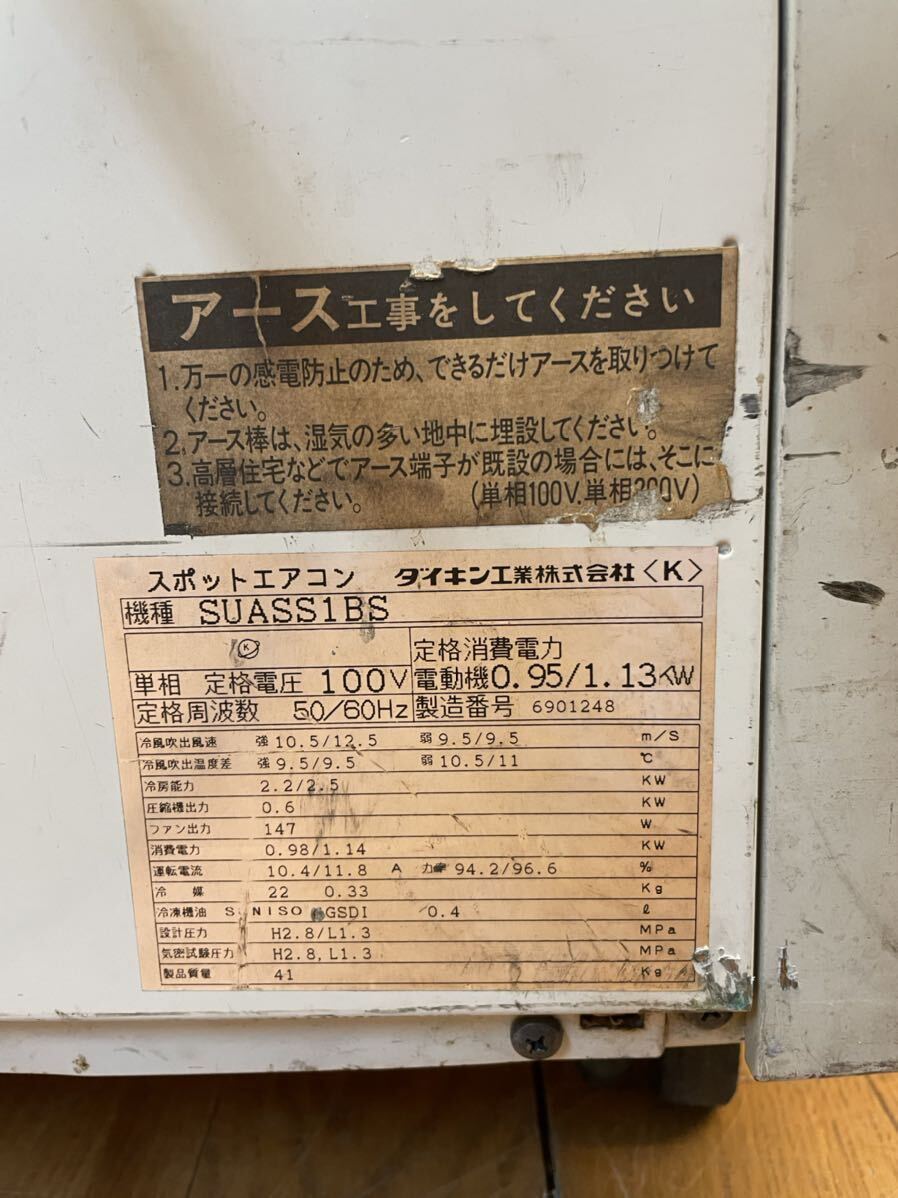 アース工事をしてください
1.万一の感電防止のため、できるだけアースを取りつけて
ください。
2.アース棒は、湿気の多い地中に埋設してください。
3.高層住宅などでアース端子が既設の場合には、そこに
接続してください。 (単相100V.単相200V)
スポットエアコン ダイキン工業株式会社〈K〉
機種 SUASS1BS
K
定格消費電力
単相 定格電圧 100V 電動機0.95/1.13KW
定格周波数 50/60Hz 製造番号 6901248
冷風吹出風速 強 10.5/12.5 弱 9.5/9.5 m/S
冷風吹出温度差 強 9.5/9.5 弱 10.5/11 ℃
冷房能力 2.2/2.5 KW
圧縮機出力 0.6 KW
ファン出力 147 W
消費電力 0.98/1.14 KW
運転電流 10.4/11.8 A 力率 94.2/96.6 %
冷媒 22 0.33 Kg
冷凍機油 SUNISO GSDI 0.4 ℓ
設計圧力 H2.8/L1.3 MPa
気密試験圧力 H2.8,L1.3 MPa
製品質量 41 Kg